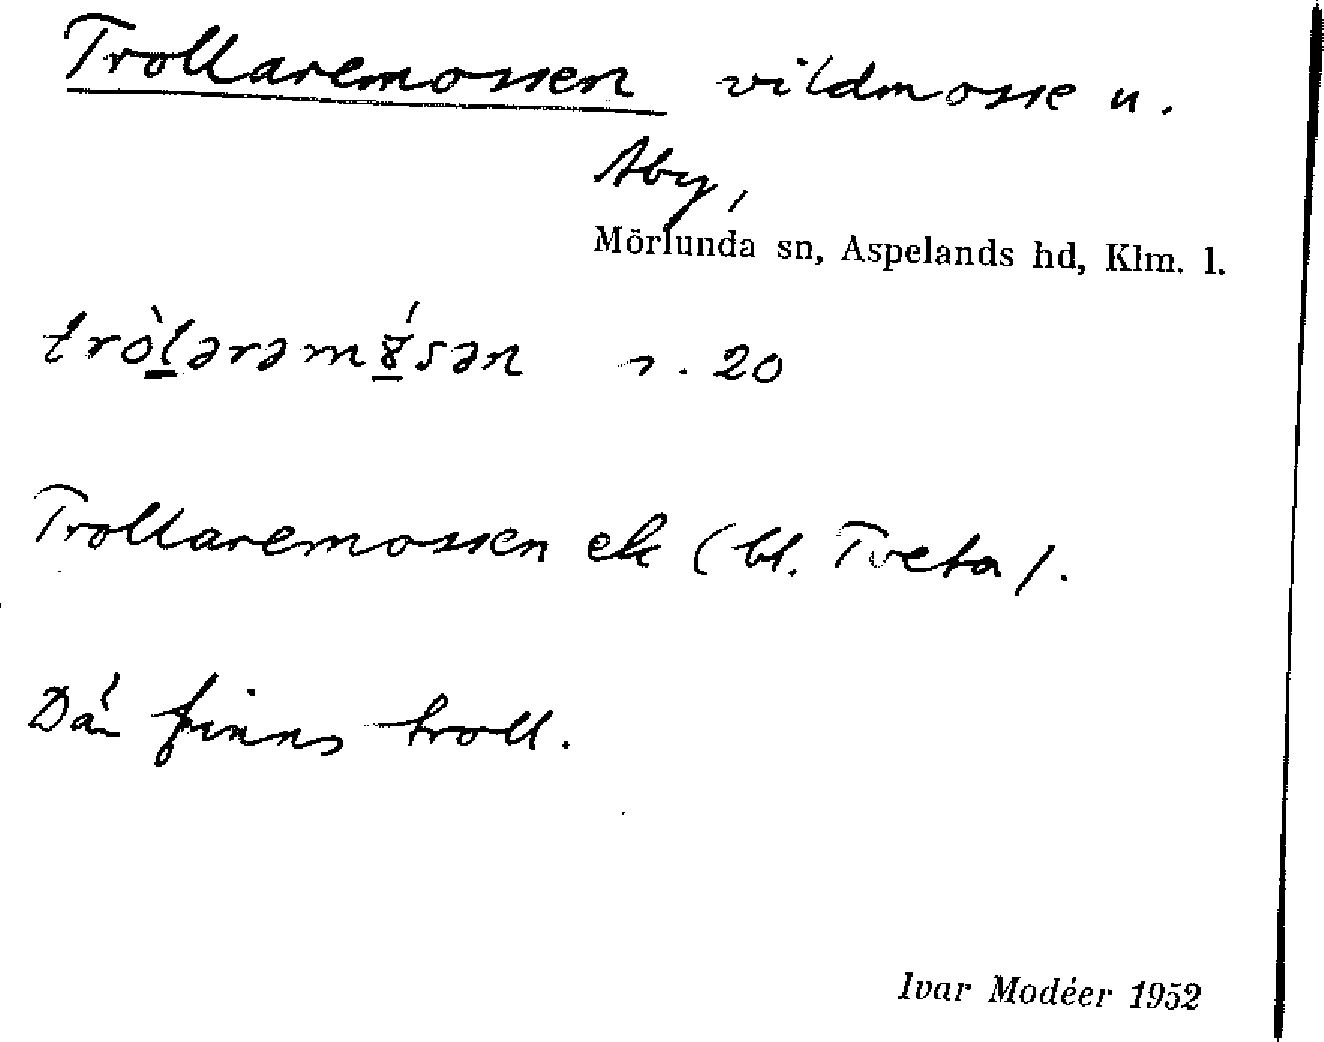 Trollaremossen vildmosse u.
Åby,
Mörlunda sn, Aspelands hd, Klm. l.
tròlarəmɣ́sən s. 20
Trollaremossen ek (bl. Tveta).
Där finns troll.
Ivar Modéer 1952